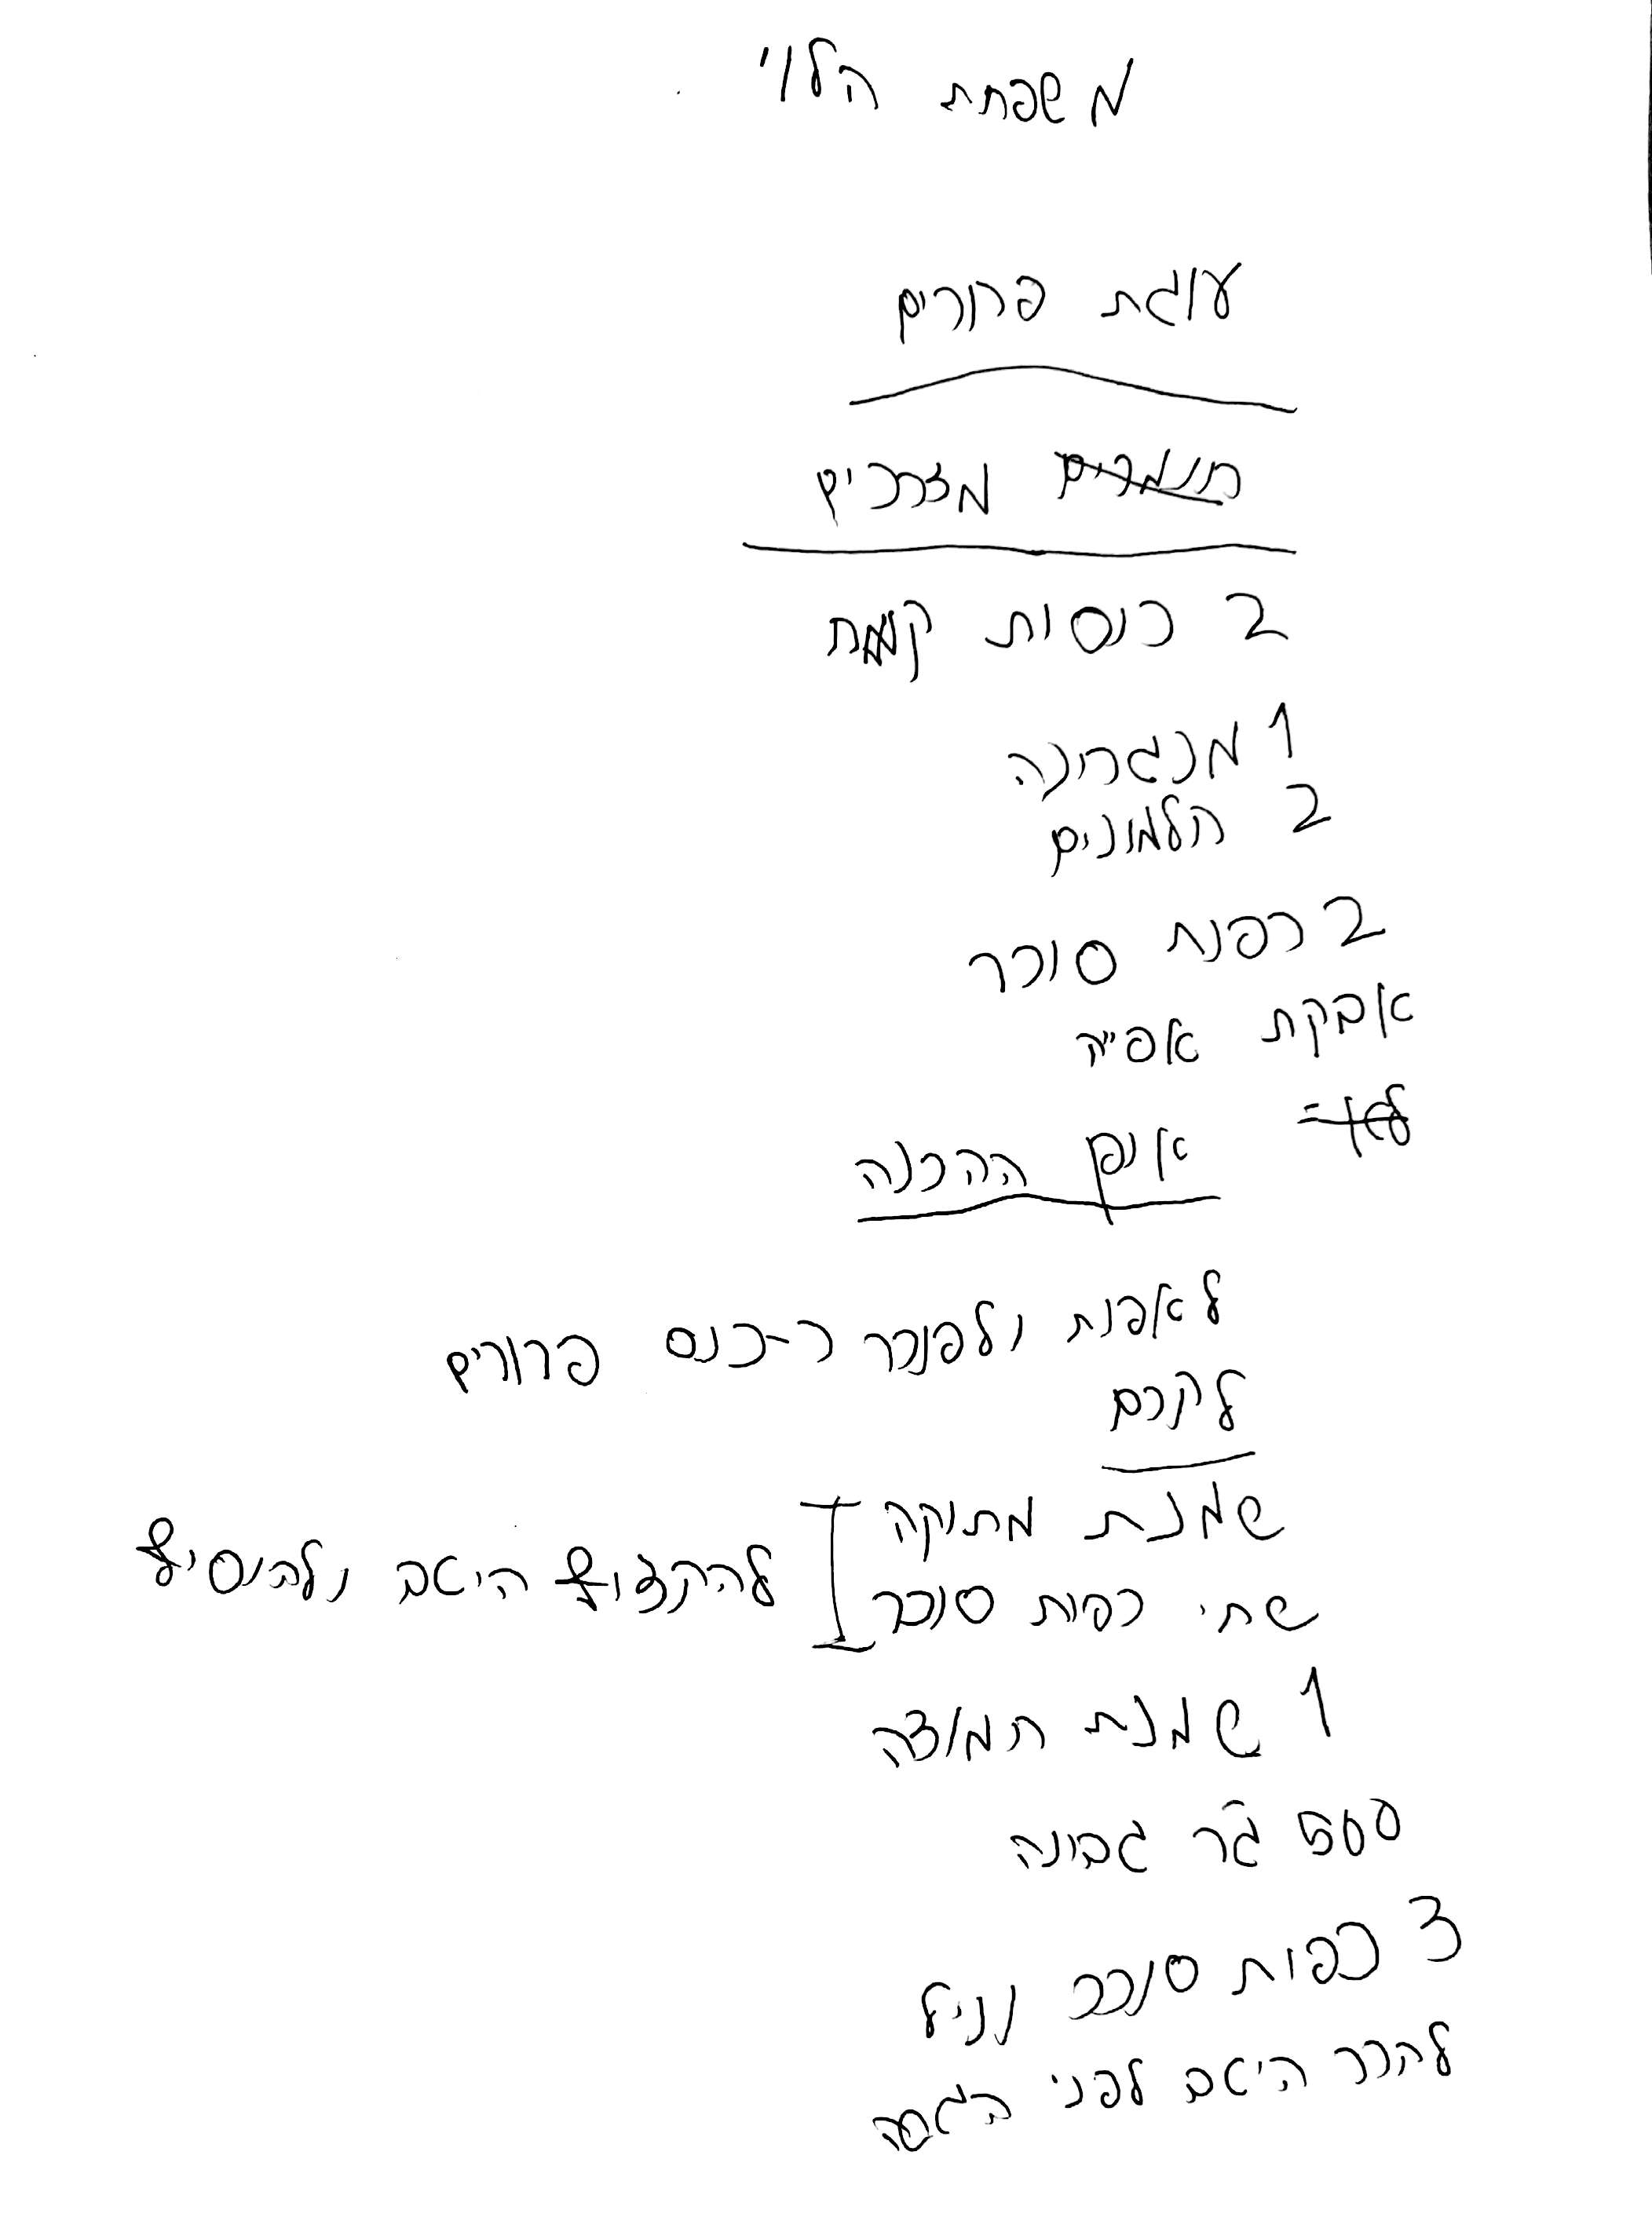 משפחת הלוי
עוגת פרורים
חומרים מצרכים
2 כוסות קמח
1 מנגרינה
2 חלמונים
2 כפות סוכר
אבקת אפייה
אופן ההכנה
לאפות ולפורר כ-כוס פרורים
לקרם
שמנת מתוקה
שתי כפות סוכר
להקציף היטב ולהוסיף
1 שמנת חמוצה
500 גר גבינה
3 כפות סוכר וניל
לקרר היטב לפני